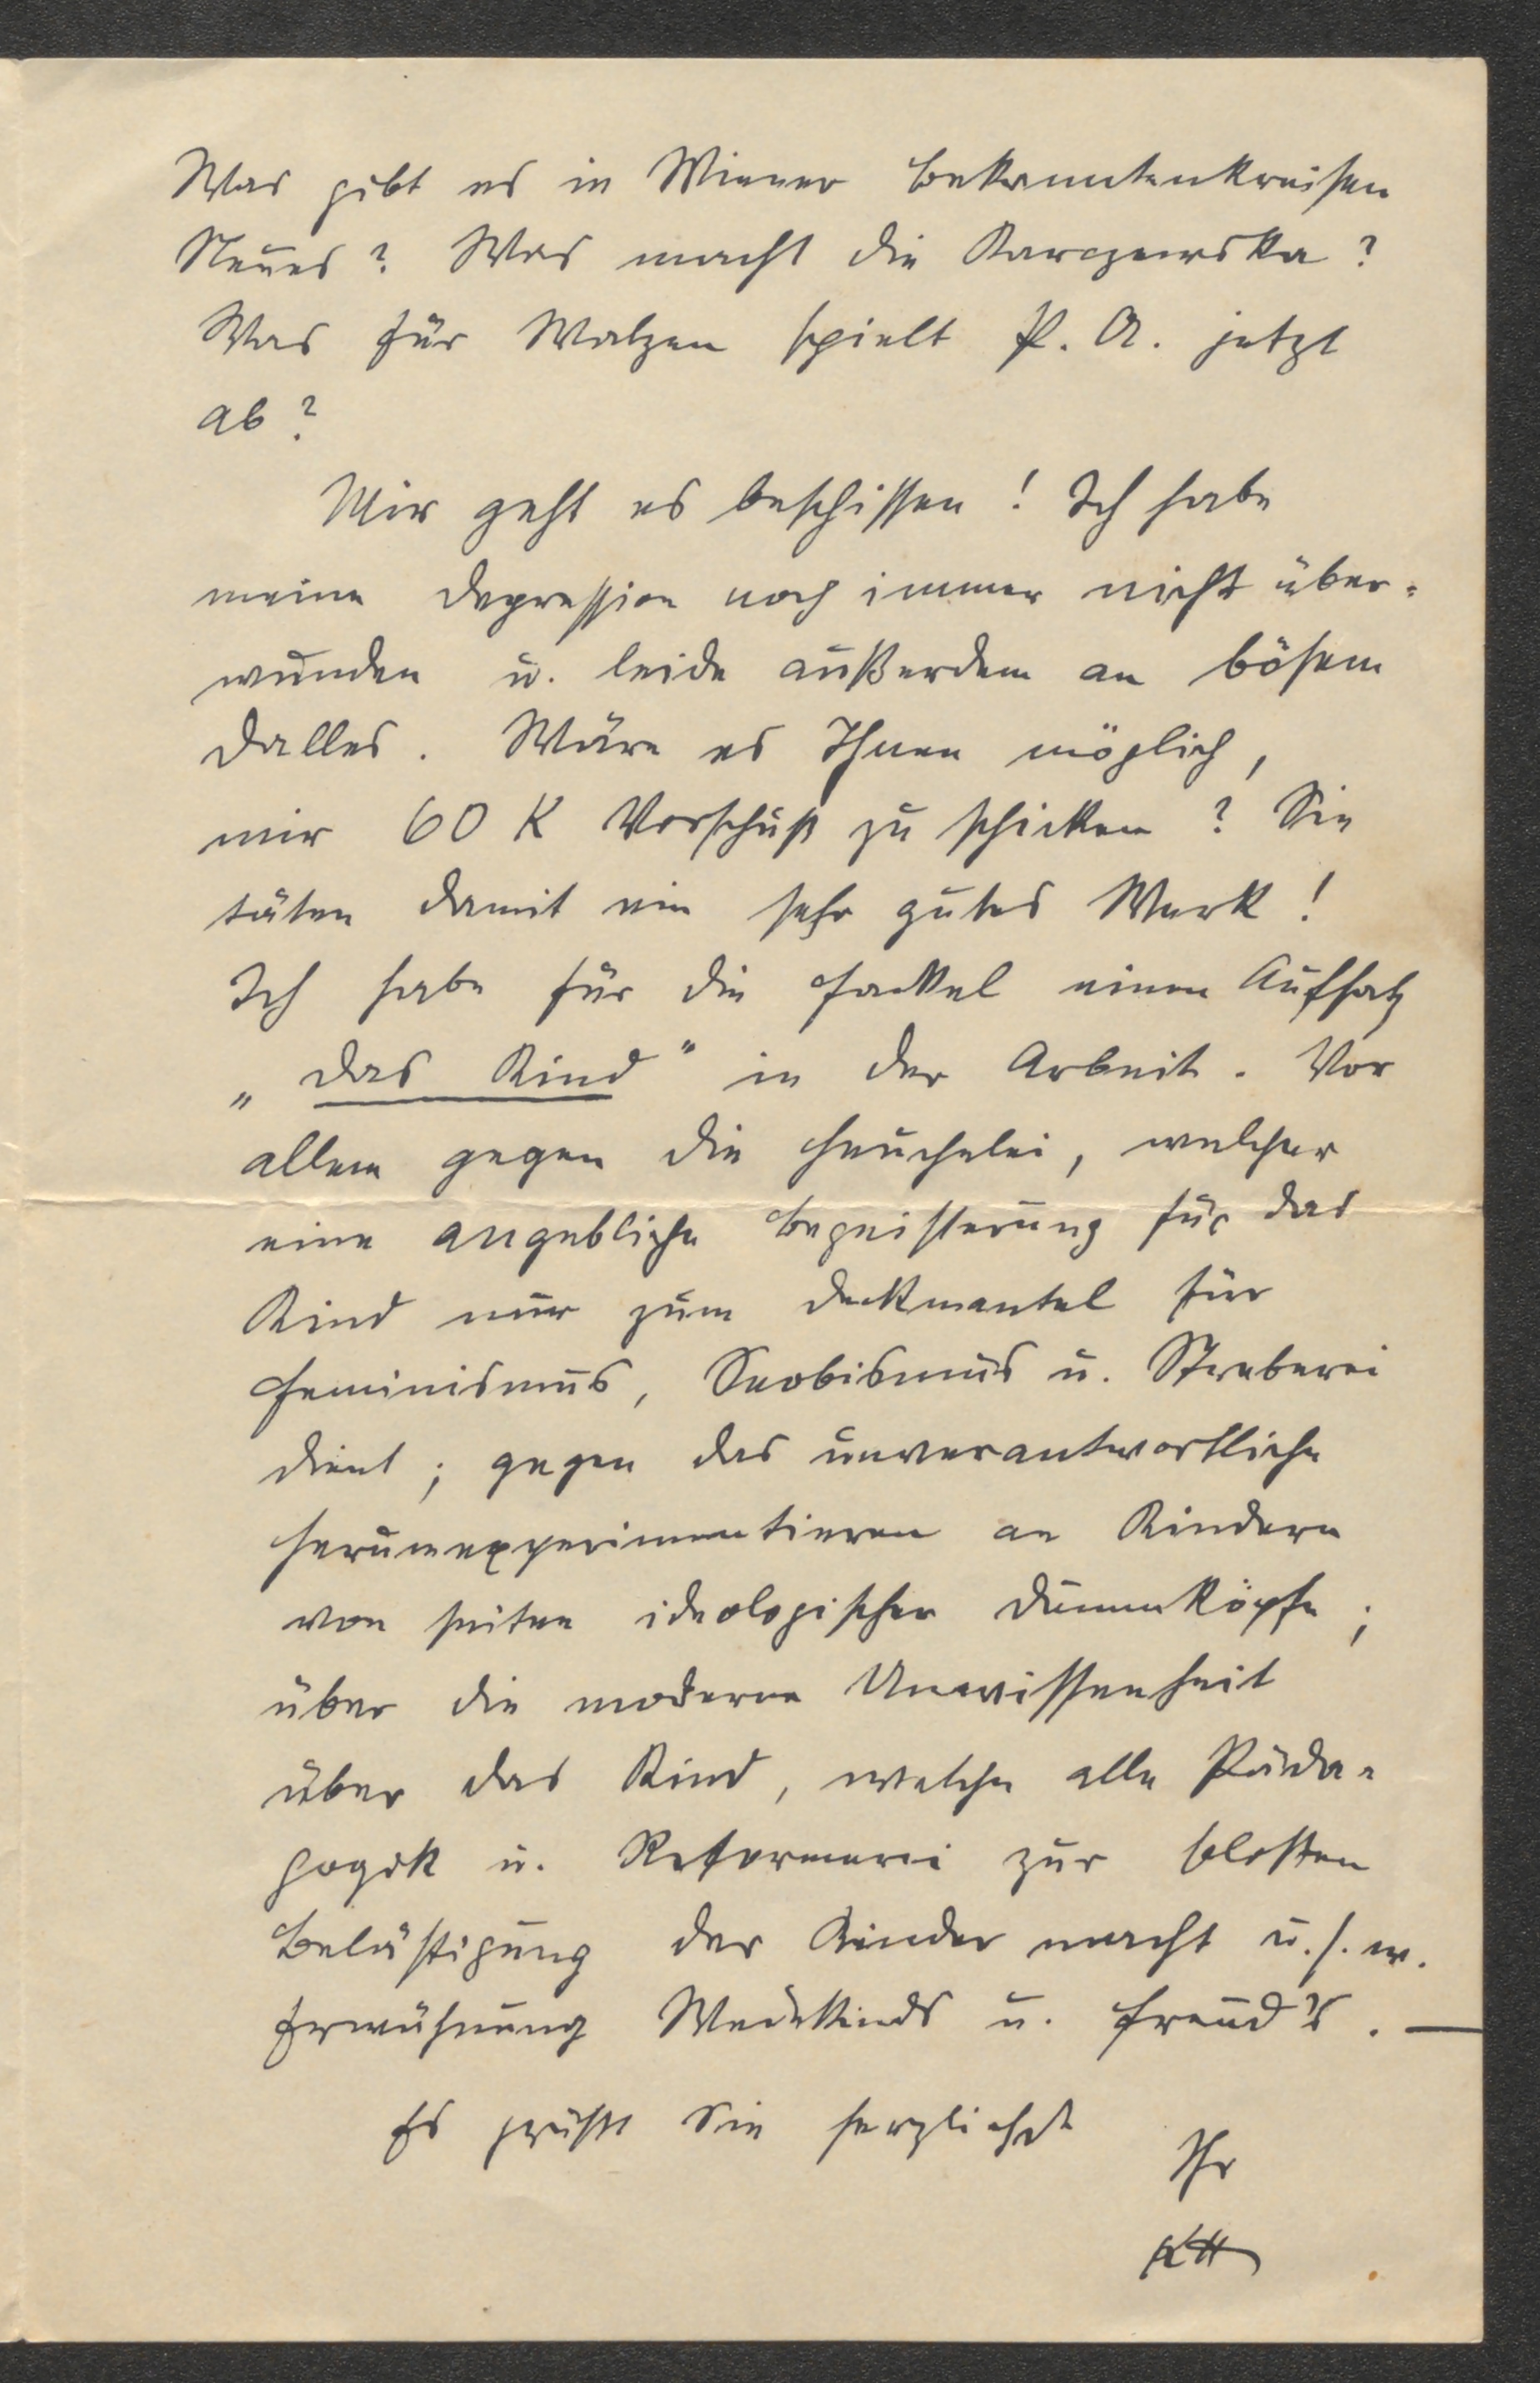 Was gibt es in Wiener Bekanntenkreisen
Neues? Was macht die Karczewska?
Was für Walzen spielt P. A. jetzt
ab?
Mir geht es beschissen! Ich habe
meine Depression noch immer nicht über-
wunden u. leide außerdem an bösem
Dalles. Wäre es Ihnen möglich,
mir 60 K Vorschuß zu schicken? Sie
täten damit ein sehr gutes Werk!
Ich habe für die Fackel einen Aufsatz
„Das Kind" in der Arbeit. Vor
allem gegen die Heuchelei, welcher
eine angebliche Begeisterung für das
Kind nur zum Deckmantel für
Feminismus, Snobismus u. Streberei
dient; gegen das unverantwortliche
Herumexperimentieren an Kindern
von seiten ideologischer Dummköpfe;
über die moderne Unwissenheit
über das Kind, welche alle Päda-
gogik u. Reformerei zur bloßen
Belästigung der Kinder macht u.s.w.
Erwähnung Wedekinds u. Freud's. —
Es grüßt Sie herzlichst
Ihr
KH